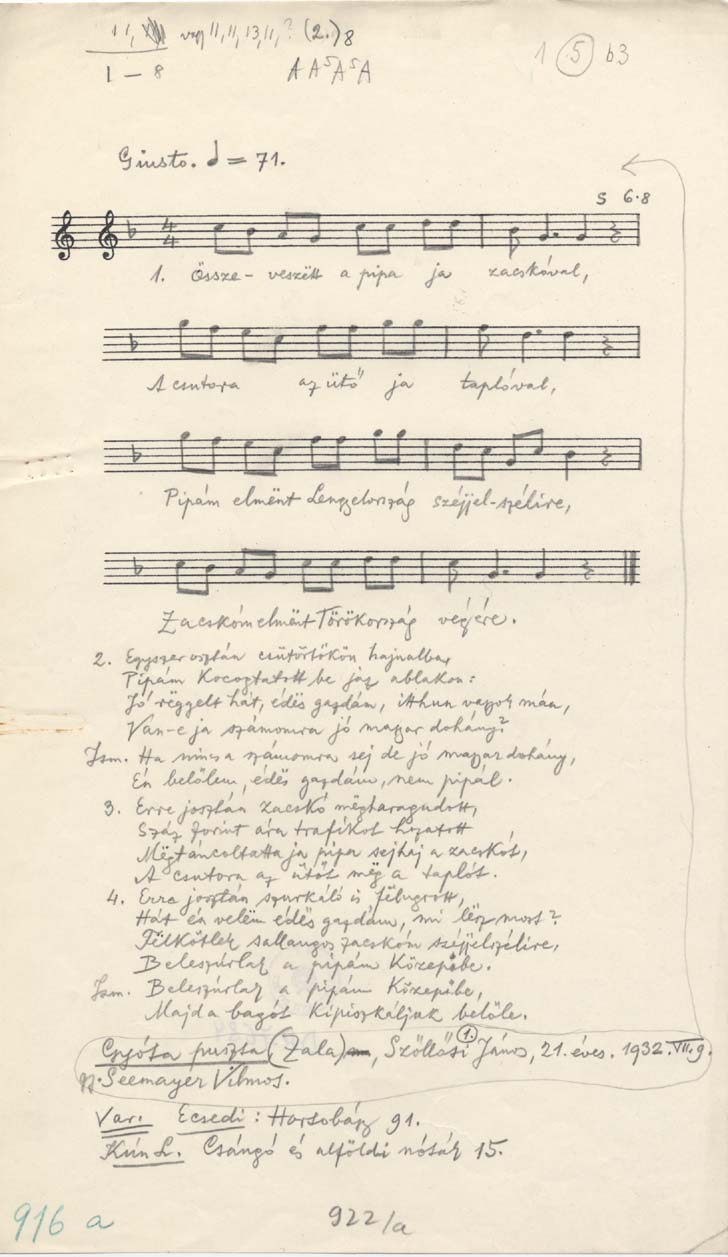 11, vagy 11, 11, 13, 11, ? (2.) 8
1 – 8
A A⁵ A⁵ A
1 (5) b3
Giusto. = 71.
5 6·8
1. Össze- veszëtt a pipa ja zacskóval,
A csutora az ütő ja taplóval,
Pipám elmënt Lengyelország széjjel-szélire,
Zacskóm elmënt Törökország végére.
2. Egyszer osztán csütörtökön hajnalba,
Pipám kocogtatott be jaz ablakon:
Jó rëggelt hát, édës gazdám, itthun vagyok mán,
Van-e ja számomra jó magyar dohány?
Ism. Ha nincs a számomra sej de jó magyar dohány,
Én belőlem, édës gazdám, nem pipál.
3. Erre josztán zacskó mëgharagudott,
Száz forint ára trafikot hozatott
Mëgtáncoltatta ja pipa sejhej a zacskót,
A csutora az ütőt mëg a taplót.
4. Erre josztán szurkáló is fëlugrott,
Hát én velem édës gazdám, mi lësz most?
Fëlkötlek sallangos zacskóm széjjelszélire,
Beleszúrlak a pipám közepibe.
Ism. Beleszúrlak a pipám közepibe,
Majd a bagót kipiszkáljuk belőle.
Gyóta puszta (Zala), Szöllősi (1.) János, 21. éves. 1932. VII. 9.
gy. Seemayer Vilmos.
Var. Ecsedi: Hortobágy 91.
Kún L. Csángó és alföldi nóták 15.
916 a
922/a